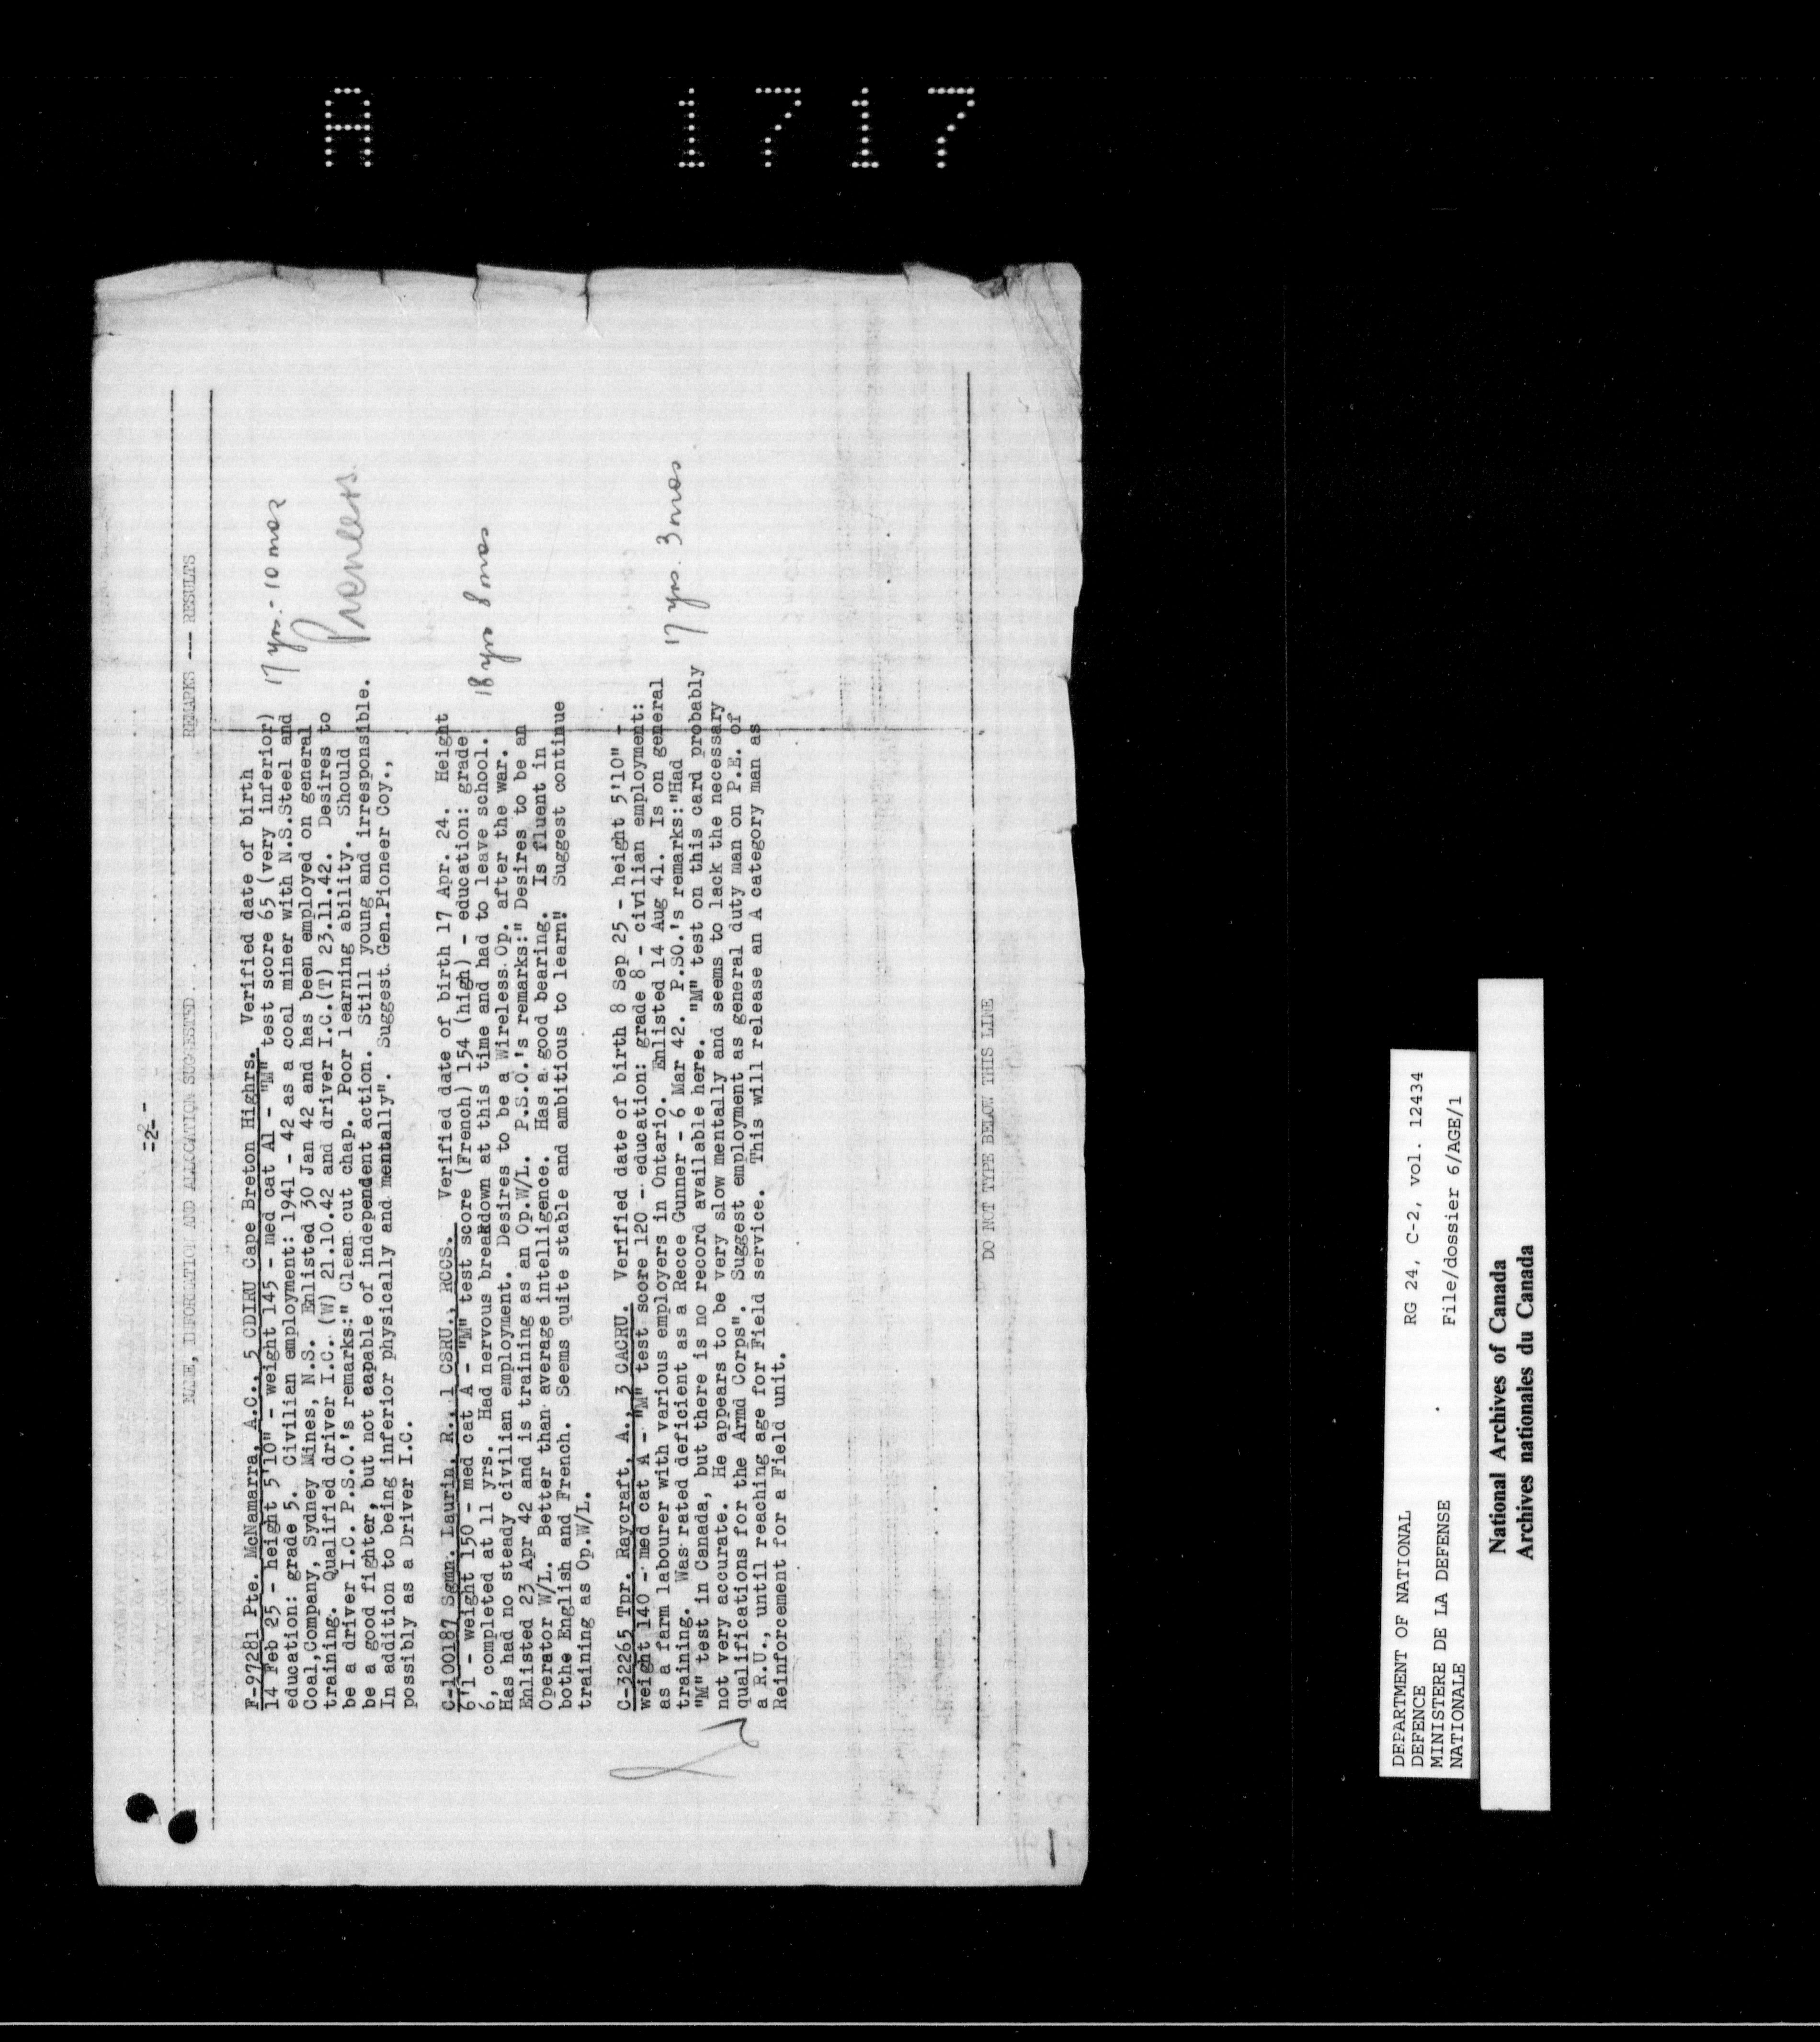 A 1717
-2-
NAME, INFORMATION AND ALLOCATION SUGGESTED
REMARKS --- RESULTS
F-97281 Pte. McNamarra, A.C., 5 CDIRU Cape Breton Highrs. Verified date of birth
14 Feb 25 - height 5'10" - weight 145 - med cat A1 - "M" test score 65 (very inferior)
education: grade 5. Civilian employment: 1941 - 42 as a coal miner with N.S.Steel and
Coal,Company, Sydney Mines, N.S. Enlisted 30 Jan 42 and has been employed on general
training. Qualified driver I.C. (W) 21.10.42 and driver I.C.(T) 23.11.42. Desires to
be a driver I.C. P.S.O.'s remarks:" Clean cut chap. Poor learning ability. Should
be a good fighter, but not capable of independent action. Still young and irresponsible.
In addition to being inferior physically and mentally". Suggest Gen.Pioneer Coy.,
possibly as a Driver I.C.
17 yrs.- 10 mos
Pioneers
C-100187 Sgmn. Laurin, R., 1 CSRU., RCCS. Verified date of birth 17 Apr. 24. Height
6'1 - weight 150 - med cat A - "M" test score (French) 154 (high) - education: grade
6, completed at 11 yrs. Had nervous breakdown at this time and had to leave school.
Has had no steady civilian employment. Desires to be a Wireless Op. after the war.
Enlisted 23 Apr 42 and is training as an Op.W/L. P.S.O.'s remarks:" Desires to be an
Operator W/L. Better than average intelligence. Has a good bearing. Is fluent in
bothe English and French. Seems quite stable and ambitious to learn" Suggest continue
training as Op.W/L.
18 yrs 8 mos
C-32265 Tpr. Raycraft, A., 3 CACRU. Verified date of birth 8 Sep 25 - height 5'10" -
weight 140 - med cat A - "M" test score 120 - education: grade 8 - civilian employment:
as a farm labourer with various employers in Ontario. Enlisted 14 Aug 41. Is on general
training. Was rated deficient as a Recce Gunner - 6 Mar 42. P.SO.'s remarks:"Had
"M" test in Canada, but there is no record available here. "M" test on this card probably
not very accurate. He appears to be very slow mentally and seems to lack the necessary
qualifications for the Armd Corps". Suggest employment as general duty man on P.E. of
a R.U., until reaching age for Field service. This will release an A category man as
Reinforcement for a Field unit.
17 yrs. 3 mos
DO NOT TYPE BELOW THIS LINE
DEPARTMENT OF NATIONAL
DEFENCE
MINISTERE DE LA DEFENSE
NATIONALE
RG 24, C-2, vol. 12434
File/dossier 6/AGE/1
National Archives of Canada
Archives nationales du Canada